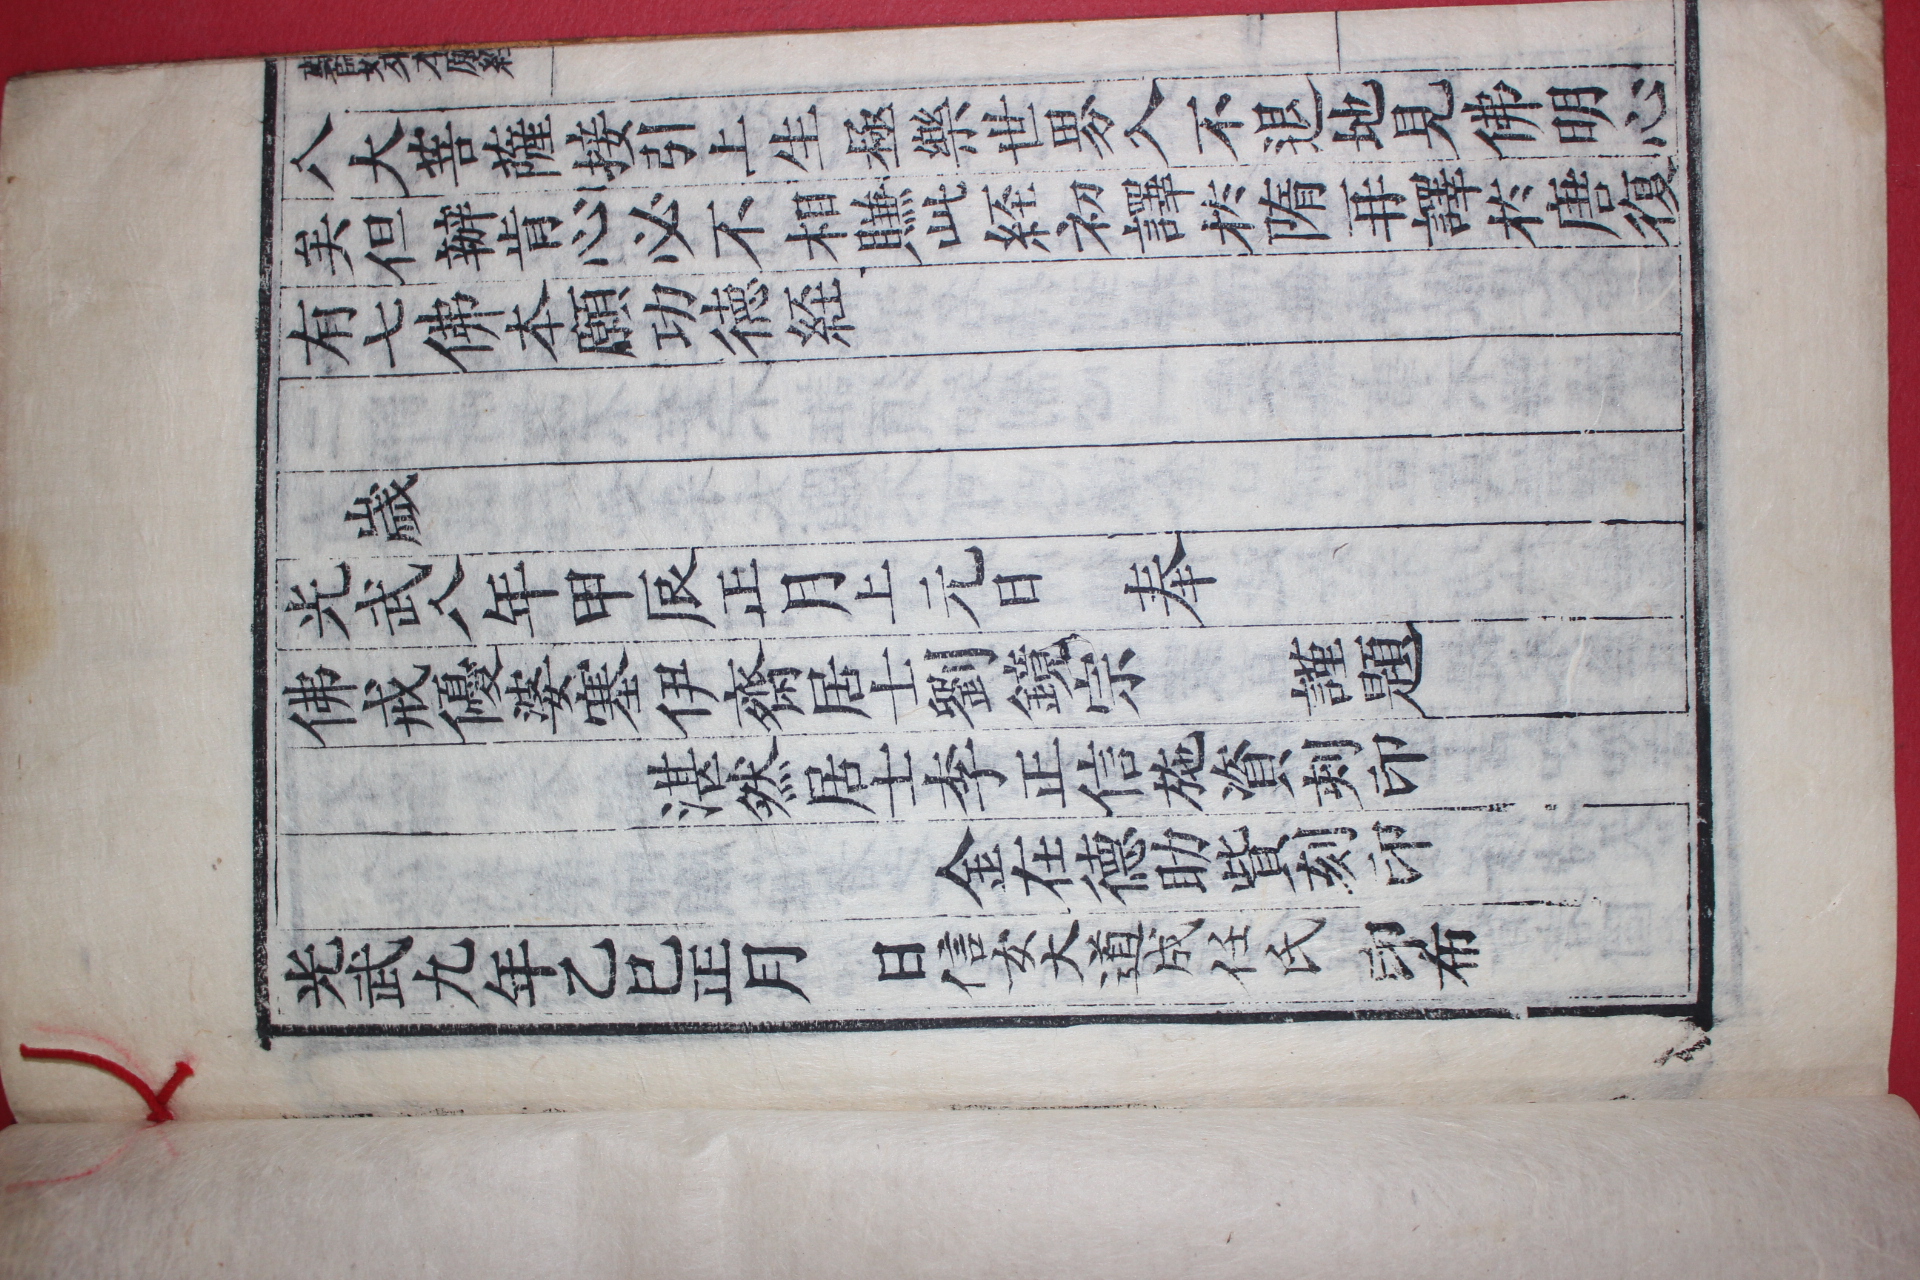 八大菩薩接引上生極樂世界入不退地見佛明心
矣但辦肯心必不相賺此経初譯於隋再譯於唐復
有七佛本願功德経
歲
光武八年甲辰正月上元日 奉
佛戒優婆塞伊齋居士劉鏡宗 謹題
湛然居士李正信施資刻印
金在德助貲刻印
光武九年乙巳正月 日信女大道成任氏 印布